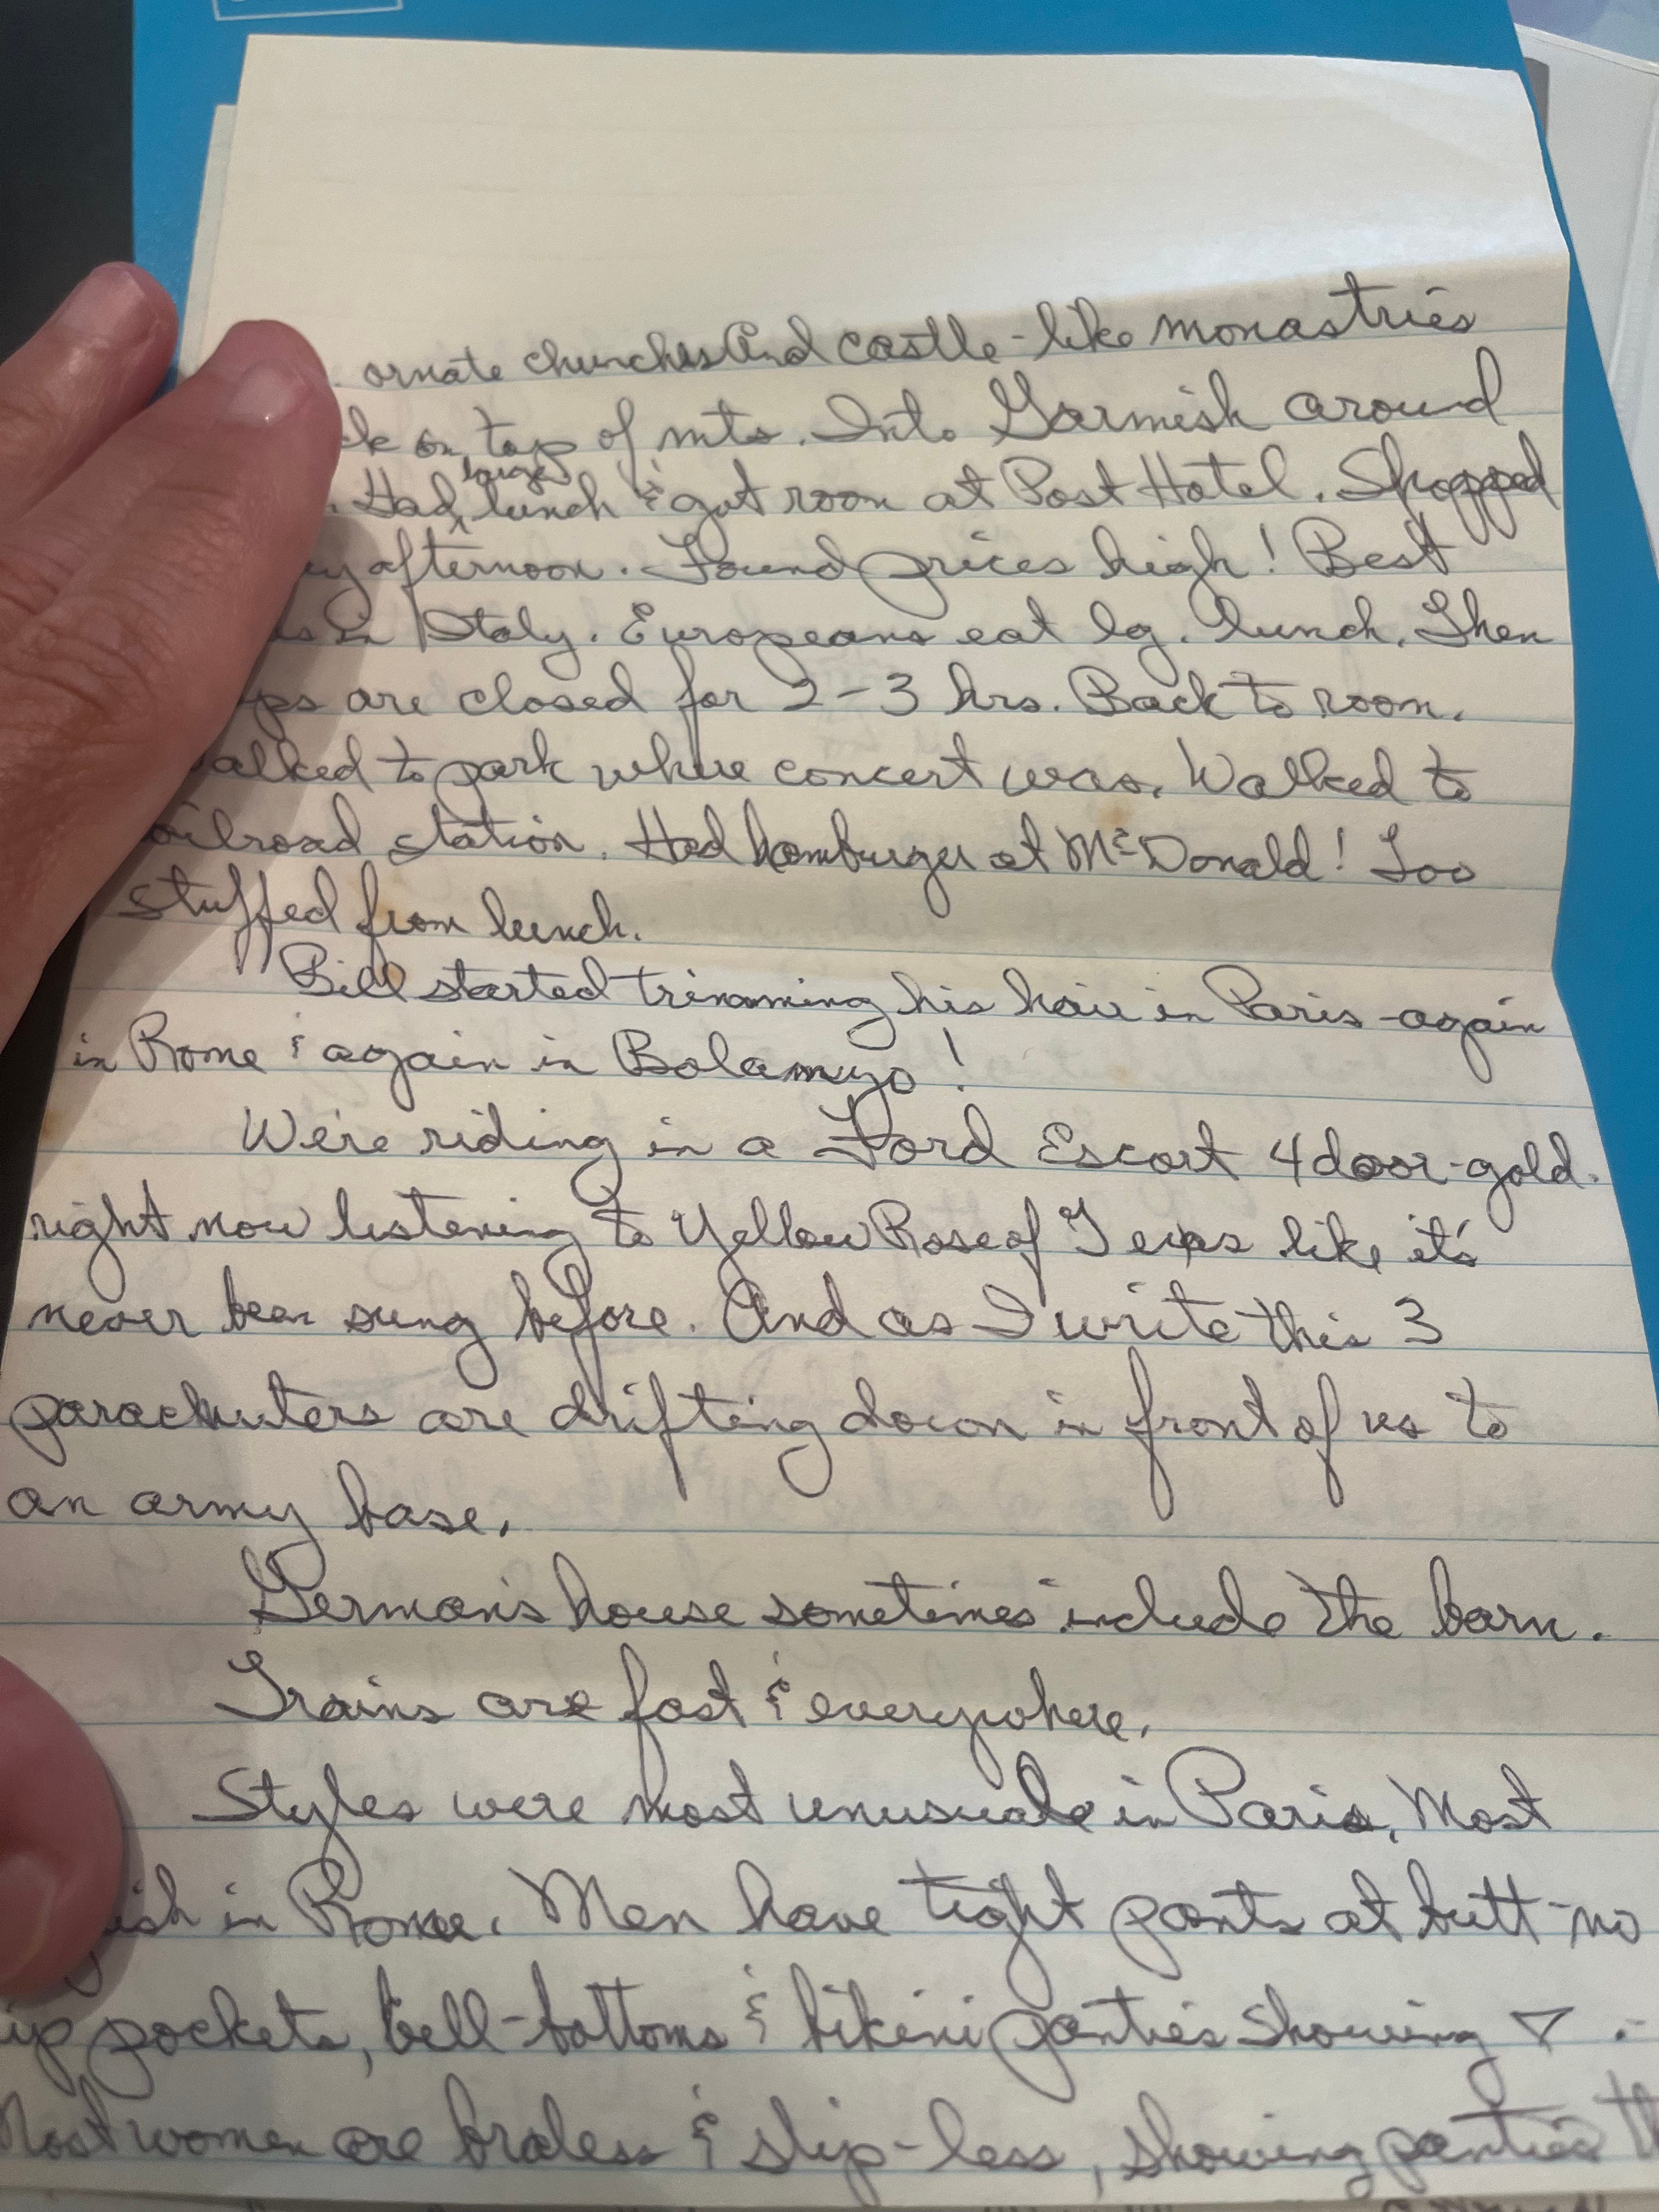 ornate churches And castle-like monastries
on top of mts. Into Garmish around
. Had large lunch & got room at Post Hotel. Shopped
afternoon. Found prices high! Best
in Italy. Europeans eat lg. lunch. Then
are closed for 2-3 hrs. Back to room.
alked to park where concert was. Walked to
ailroad station. Had hamburger at McDonald! Too
stuffed from lunch.
Bill started trimming his hair in Paris - again
in Rome & again in !
We're riding in a Ford Escort 4 door-gold.
right now listening to Yellow Rose of Texas like it's
never been sung before. And as I write this 3
parachuters are drifting down in front of us to
an army base.
German's house sometimes include the barn.
Trains are fast & everywhere.
Styles were most unusual in Paris. Most
ish in Rome. Men have tight pants at butt - no
ip pockets, bell-bottoms & bikini panties showing ▽.
Most women are braless & slip-less, showing panties